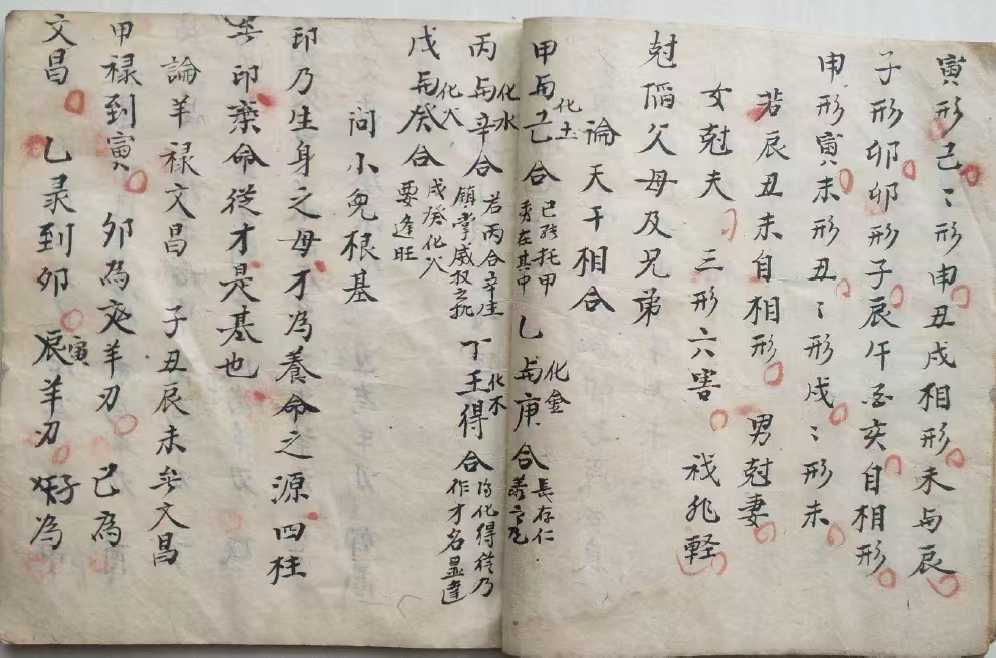 寅形己〻形申丑戌相形未与辰
子形卯卯形子辰午酉亥自相形
申形寅未形丑〻形戌〻形未
若辰丑未自相形 男尅妻
女尅夫 三形六害 非軽
尅傷父母及兄弟
論天干相合
甲与己合 化土 己 托甲 秀在其中 乙与庚合 化金 長存仁
丙与辛合 化水 若丙合辛生 鎮掌威权之 丁壬得合 化木 化得 乃 作才名显達
戊与癸合 化火 戊癸化火 要逢旺
问小兒根基
印乃生身之母才為養命之源四柱
無印棄命從才是基也
論羊禄文昌 子丑辰未無文昌
甲禄到寅 卯為 羊刃 己為
文昌 乙录到卯 辰寅羊刃 子為